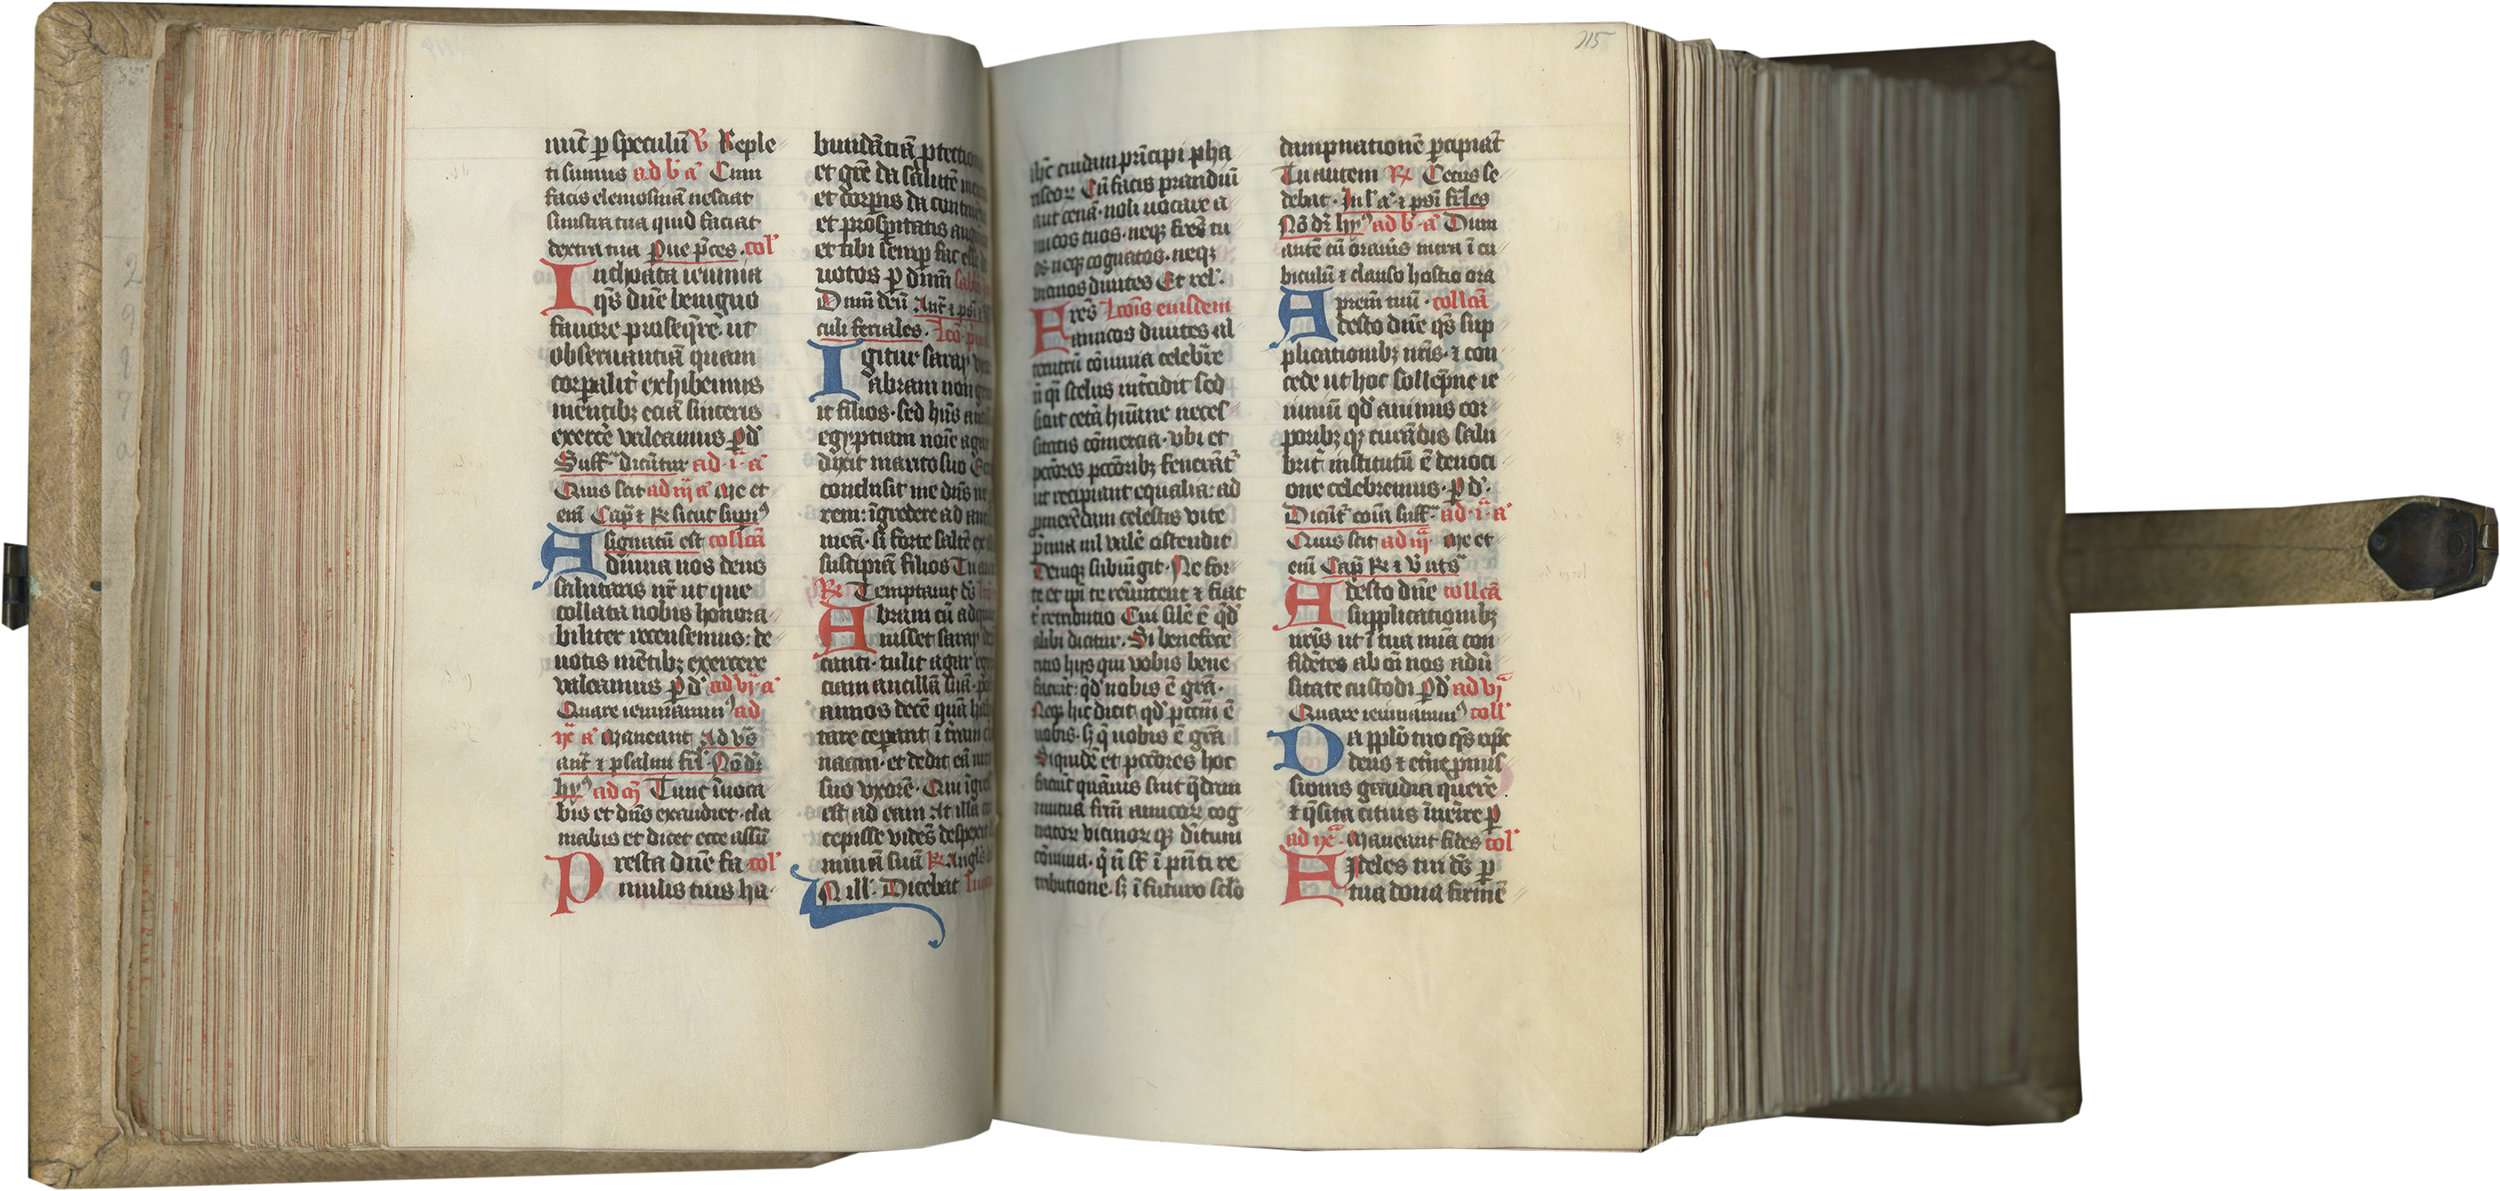 nūc ꝑ speculū ꝟ Reple
ti sumus ad b̄ a᷑ Cum
facis elemosinā nesciat
sinistra tua quid faciat
dextra tua Que p̄ces . col᷑
Inchoata ieiunia
q̄s dn̄e benigno
fauore proseq̄re . ut
obseruantiā quam
corꝑalit᷑ exhibemus
mētibꝫ eciā sinceris
exercē valeamus ꝑ d᷑
Suff᷑ dicūtur ad .i. a᷑
Quis scit ad iij a᷑ Me et
eni Cap̄ & R̷ sicut supͥꝰ
Assignatū est collcā
diuina nos deus
salutaris nr̄ ut que
collata nobis honora
biliter recensemus : de
uotis mētibꝫ exercere
valeamus ꝑ d᷑ ad vj a᷑
Quare ieiunauimꝰ ad
ix a᷑ Maneant Ad vꝰ
ant̄ & psalmi fil᷑ No d᷑r
hyꝰ ad m̄ Tunc īuoca
bis et dn̄s exaudiet . cla
mabis et dicet ecce assū
Presta dn̄e fa col᷑
mulis tuis ha
bundātiā ꝓtectio
et grē da salutē
et corꝑis da
et prosꝑitatis
et tibi semꝑ fac
uotos ꝑ dn̄m
Dnm̄ deū Ant̄ &
culi feriales .
Igitur saray
abram non
it filios . sed hn̄s
egyptiam noīe
dixit marito suo
conclusit me dn̄s
rem : īgredere ad
meā . si forte saltē
suscipiā filios Tu
R̷ Temptauit dꝰ
Abram cū
niisset saray
canti . tulit agar
ciam ancillā suā .
annos decē quā
tare ceꝑant ī
naan . et dedit eā
suo vxorē . Qui
est ad eam At illa
cepisse vidēs
minā suā R̷ Angl̄s
Nill᷑ . Dicebat
215
hc̄ cuidam prīcipi pha
riseoꝝ Cū facis prandiū
aut cenā . noli uocare a
micos tuos . neqꝫ frēs tu
os neqꝫ cognatos . neqꝫ
vicinos diuites Et rel᷑ .
Frēs Lcōis eiusdem
amicos diuites al
terutrū cōuiuia celebrē
n̄ qͥ scelus intēdit sed
sicut cetā hūane neces
sitatis cōmercia . vbi et
pctōres pctōribꝫ fenerāt᷑
ut recipiant equalia : ad
ꝓmerēdam celestis vite
p̄mia nil valē ostendit
Denique subiūgit . Ne for
te et ip̄i te reīuitent & fiat
t᷑ retributio Cui sil᷑e ē qd᷑
alibi dicitur . Si benefece
ritis hijs qui vobis bene
faciūt : qd᷑ nobis ē grā .
Neqꝫ hic dicit qd᷑ pctm̄ ē
uobis . sꝫ q̄ uobis ē grā
Siquidē et pctōres hoc
faciūt quāuis sint q̄dam
mutua frm̄ amicoꝝ cog
natoꝝ vicinoꝝ qꝫ dītum
cōuiuia . q̄ n̄ sꝉ ī pn̄ti re
tributione . sꝫ ī futuro sc̄lo
dampnationē ꝑcipiāt
Tu autem R̷ Cecus se
debat . In l᷑ a᷑ & psī fr̄les
No d᷑r hyꝰ ad b̄ . a᷑ Dum
autē cū oraūis intra ī cu
biculū & clauso hostio ora
prem̄ tuū . collcā
Adesto dn̄e q̄s sup
plicationibꝫ nr̄is . & con
cede ut hoc sollēpne ie
iuniū qd᷑ animis cor
poribꝫ qꝫ curādis salu
brit᷑ institutū ē deuoti
one celebremus . ꝑ d᷑ .
Dicūt᷑ coīa suff᷑ ad .i. a᷑
Quis scit ad iij . Me et
eni Cap̄ R̷ & v̄ uts᷑
Adesto dn̄e collcā
supplicationibꝫ
nr̄is ut ī tua mīa con
fidētes ab oī nos adū
sitate custodi ꝑ d᷑ ad vj
Quare ieiunauimꝰ coll᷑
Da pplo tuo q̄s
deus & ꝑmis
sionis gaudia querē
& q̄sita citius īuēire ꝑ
ad ix . Maneant fides col᷑
Fideles tui dꝰ ꝑ
tua dona firmē